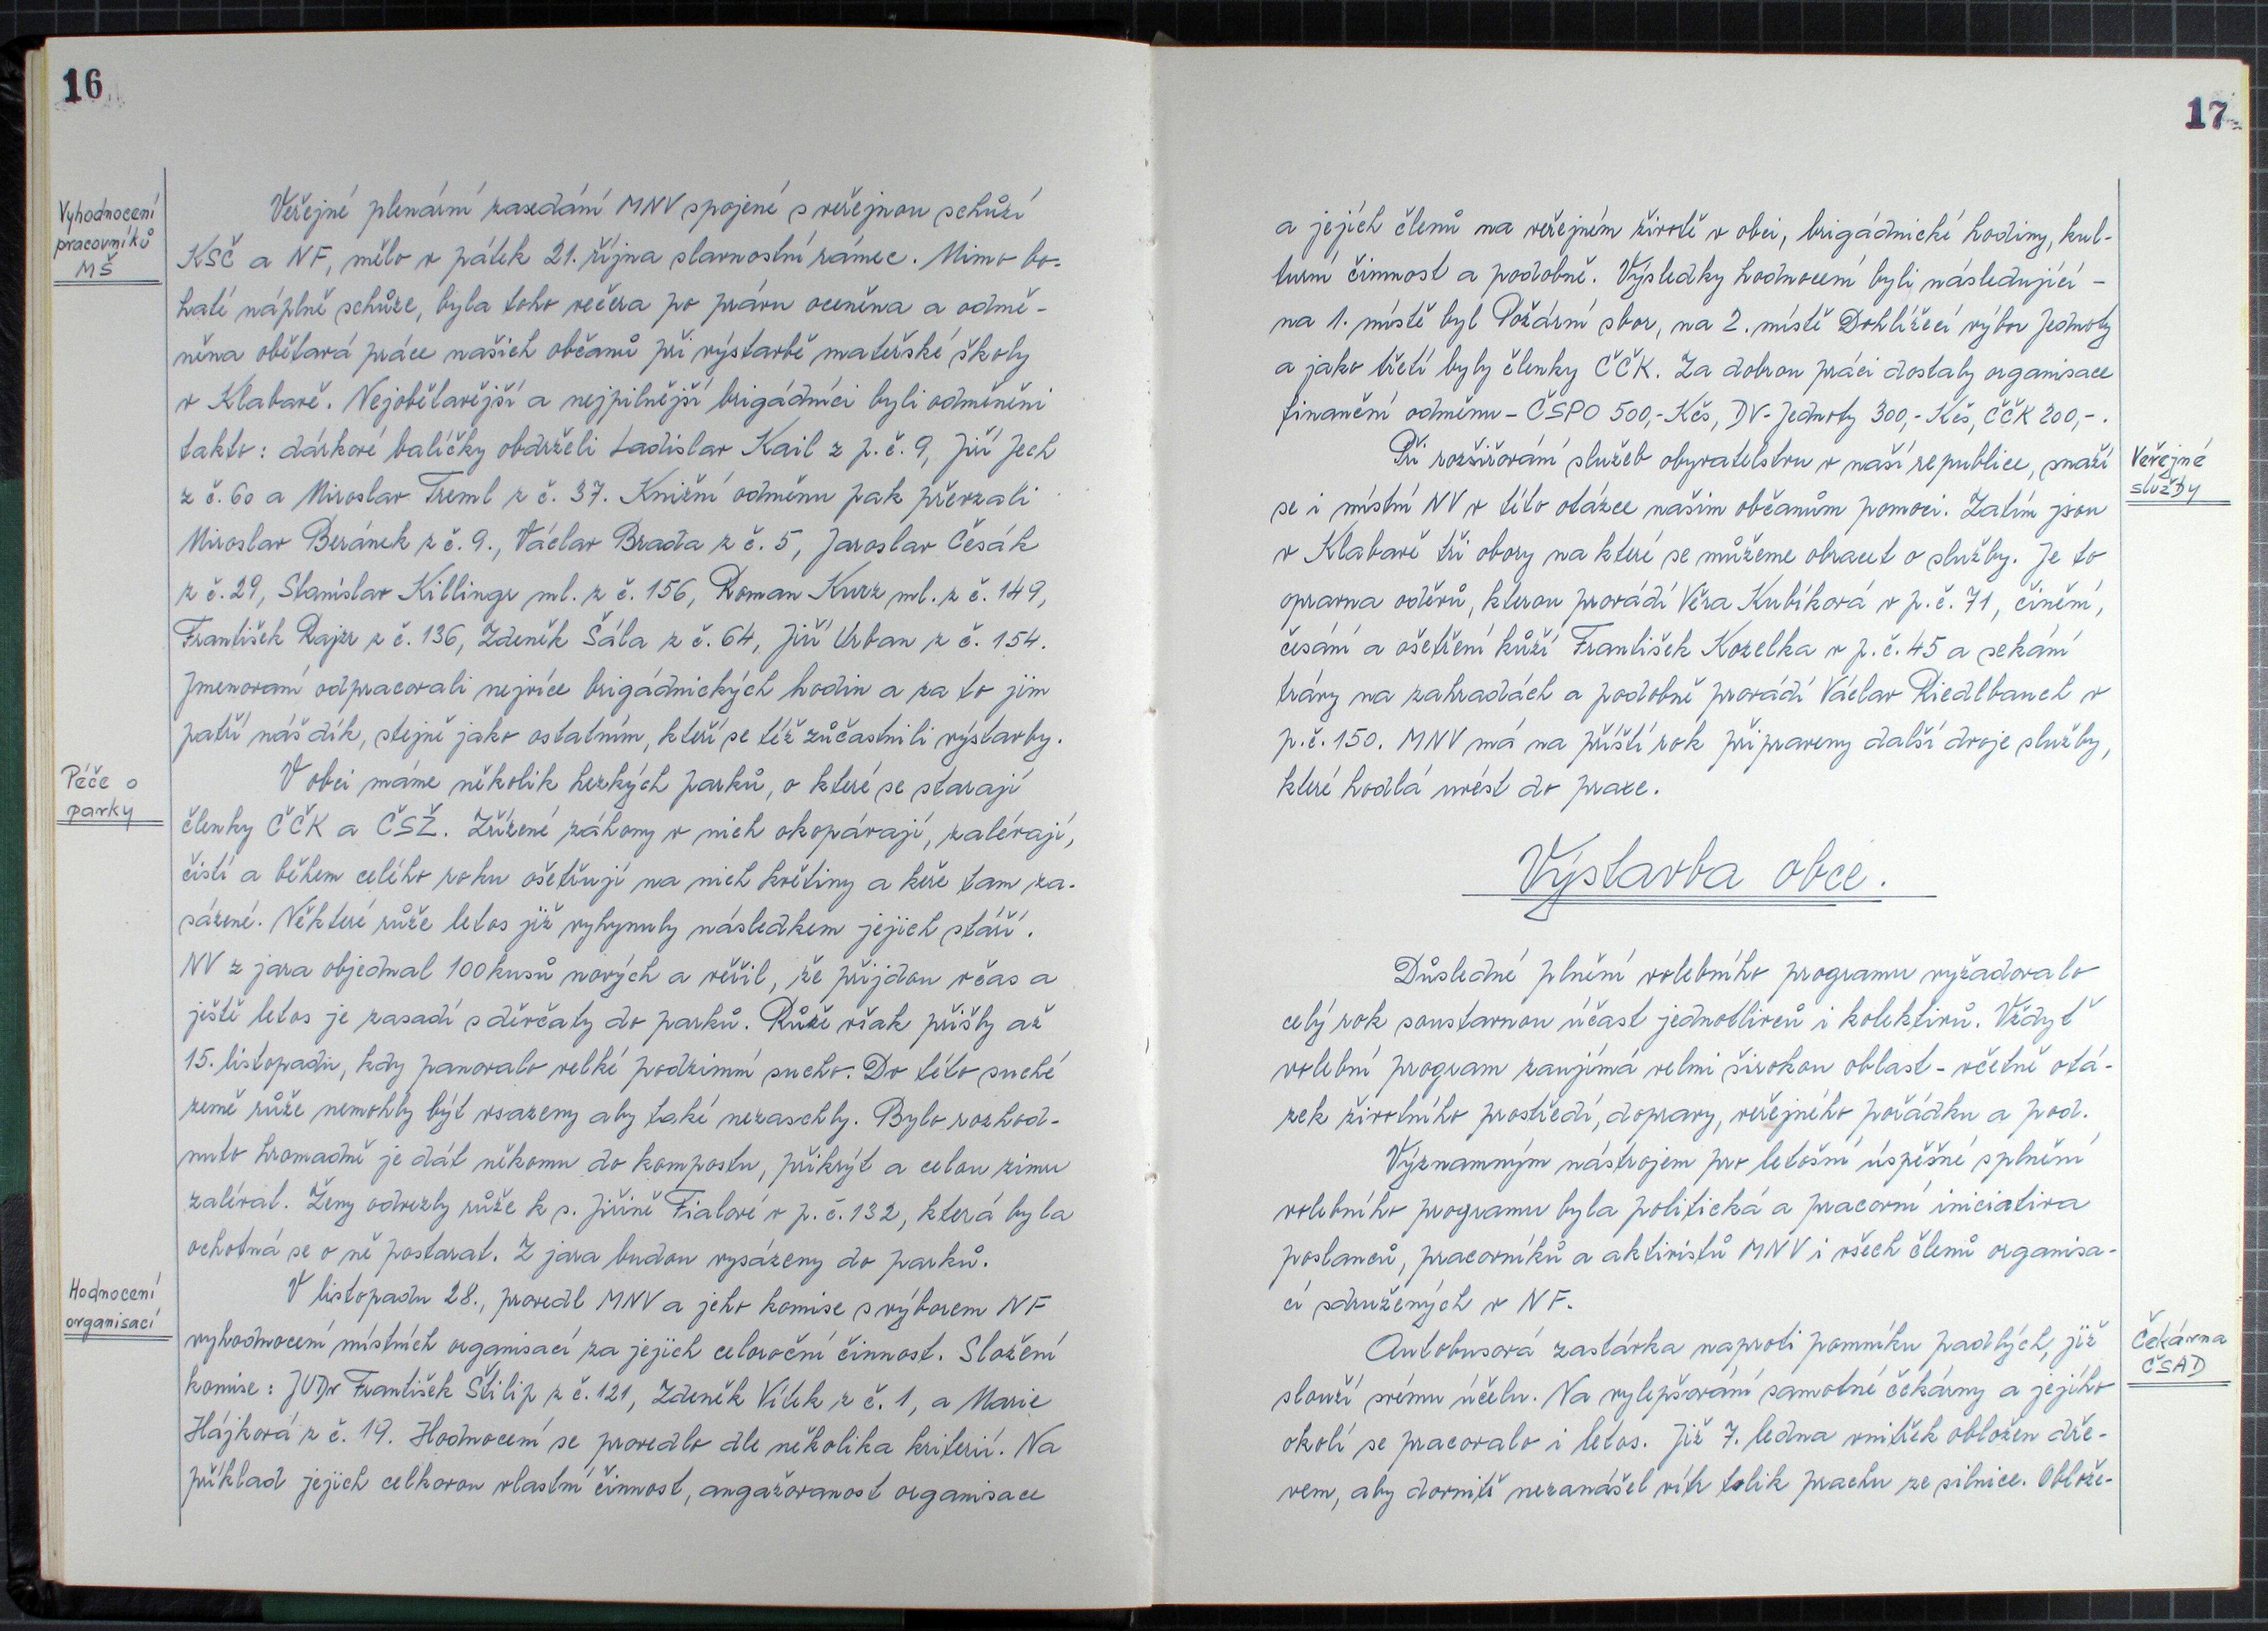 16
Vyhodnocení
pracovníků
MŠ
Veřejné plenární zasedání MNV spojené s veřejnou schůzí
KSČ a NF, mělo v pátek 21. října slavnostní rámec. Mimo bo-
haté náplně schůze, byla toho večera po právu oceněna a odmě-
něna obětavá práce našich občanů při výstavbě mateřské školy
v Klabavě. Nejobětavější a nejpilnější brigádníci byli odměněni
takto: dárkové balíčky obdrželi Ladislav Kail z p.č. 9, Jiří Jech
z č. 60 a Miroslav Treml z č. 37. Knižní odměnu pak převzali
Miroslav Beránek z č. 9., Václav Brada z č. 5, Jaroslav Česák
z č. 29, Stanislav Killingr ml. z č. 156, Roman Kurz ml. z č. 149,
František Rajzr z č. 136, Zdeněk Šála z č. 64, Jiří Urban z č. 154.
Jmenovaní odpracovali nejvíce brigádnických hodin a za to jim
patří náš dík, stejně jako ostatním, kteří se též zúčastnili výstavby.
Péče o
parky
V obci máme několik hezkých parků, o které se starají
členky ČČK a ČSŽ. Zřízené záhony v nich okopávají, zalévají,
čistí a během celého roku ošetřují na nich květiny a keře tam za-
sázené. Některé růže letos již vyhynuly následkem jejich stáří.
NV z jara objednal 100 kusů nových a věřil, že přijdou včas a
ještě letos je zasadí s děvčaty do parků. Růže však přišly až
15. listopadu, kdy panovalo velké podzimní sucho. Do této suché
země růže nemohly být vsazeny aby také nezaschly. Bylo rozhod-
nuto hromadně je dát někomu do kompostu, přikrýt a celou zimu
zalévat. Ženy odvezly růže k s. Jiřině Fialové v p.č. 132, která byla
ochotná se o ně postarat. Z jara budou vysázeny do parků.
Hodnocení
organisací
V listopadu 28., provedl MNV a jeho komise s výborem NF
vyhodnocení místních organisací za jejich celoroční činnost. Složení
komise: JUDr František Štilip z č. 121, Zdeněk Vítek z č. 1, a Marie
Hájková z č. 19. Hodnocení se provedlo dle několika kriterií. Na
příklad jejich celkovou vlastní činnost, angažovanost organisace
17
a jejích členů na veřejném životě v obci, brigádnické hodiny, kul-
turní činnost a podobně. Výsledky hodnocení byli následující -
na 1. místě byl Požární sbor, na 2. místě Dohlížecí výbor Jednoty
a jako třetí byly členky ČČK. Za dobrou práci dostaly organisace
finanční odměnu - ČSPO 500,- Kčs, DV-Jednoty 300,- Kčs, ČČK 200,-.
Veřejné
služby
Při rozšiřování služeb obyvatelstvu v naší republice, snaží
se i místní NV v této otázce našim občanům pomoci. Zatím jsou
v Klabavě tři obory na které se můžeme obracet o služby. Je to
opravna oděvů, kterou provádí Věra Kubíková v p.č. 71, činění,
česání a ošetření kůží František Kozelka v p.č. 45 a sekání
trávy na zahradách a podobně provádí Václav Riedlbauch v
p.č. 150. MNV má na příští rok připraveny další dvoje služby,
které hodlá uvést do praxe.
Výstavba obce.
Důsledné plnění volebního programu vyžadovalo
celý rok soustavnou účast jednotlivců i kolektivů. Vždyť
volební program zaujímá velmi širokou oblast - včetně otá-
zek životního prostředí, dopravy, veřejného pořádku a pod.
Významným nástrojem pro letošní úspěšné splnění
volebního programu byla politická a pracovní iniciativa
poslanců, pracovníků a aktivistů MNV i všech členů organisa-
cí sdružených v NF.
Čekárna
ČSAD
Autobusová zastávka naproti pomníku padlých, již
slouží svému účelu. Na vylepšování samotné čekárny a jejího
okolí se pracovalo i letos. Již 7. ledna vnitřek obložen dře-
vem, aby dovnitř nezanášel vítr tolik prachu ze silnice. Oblože-